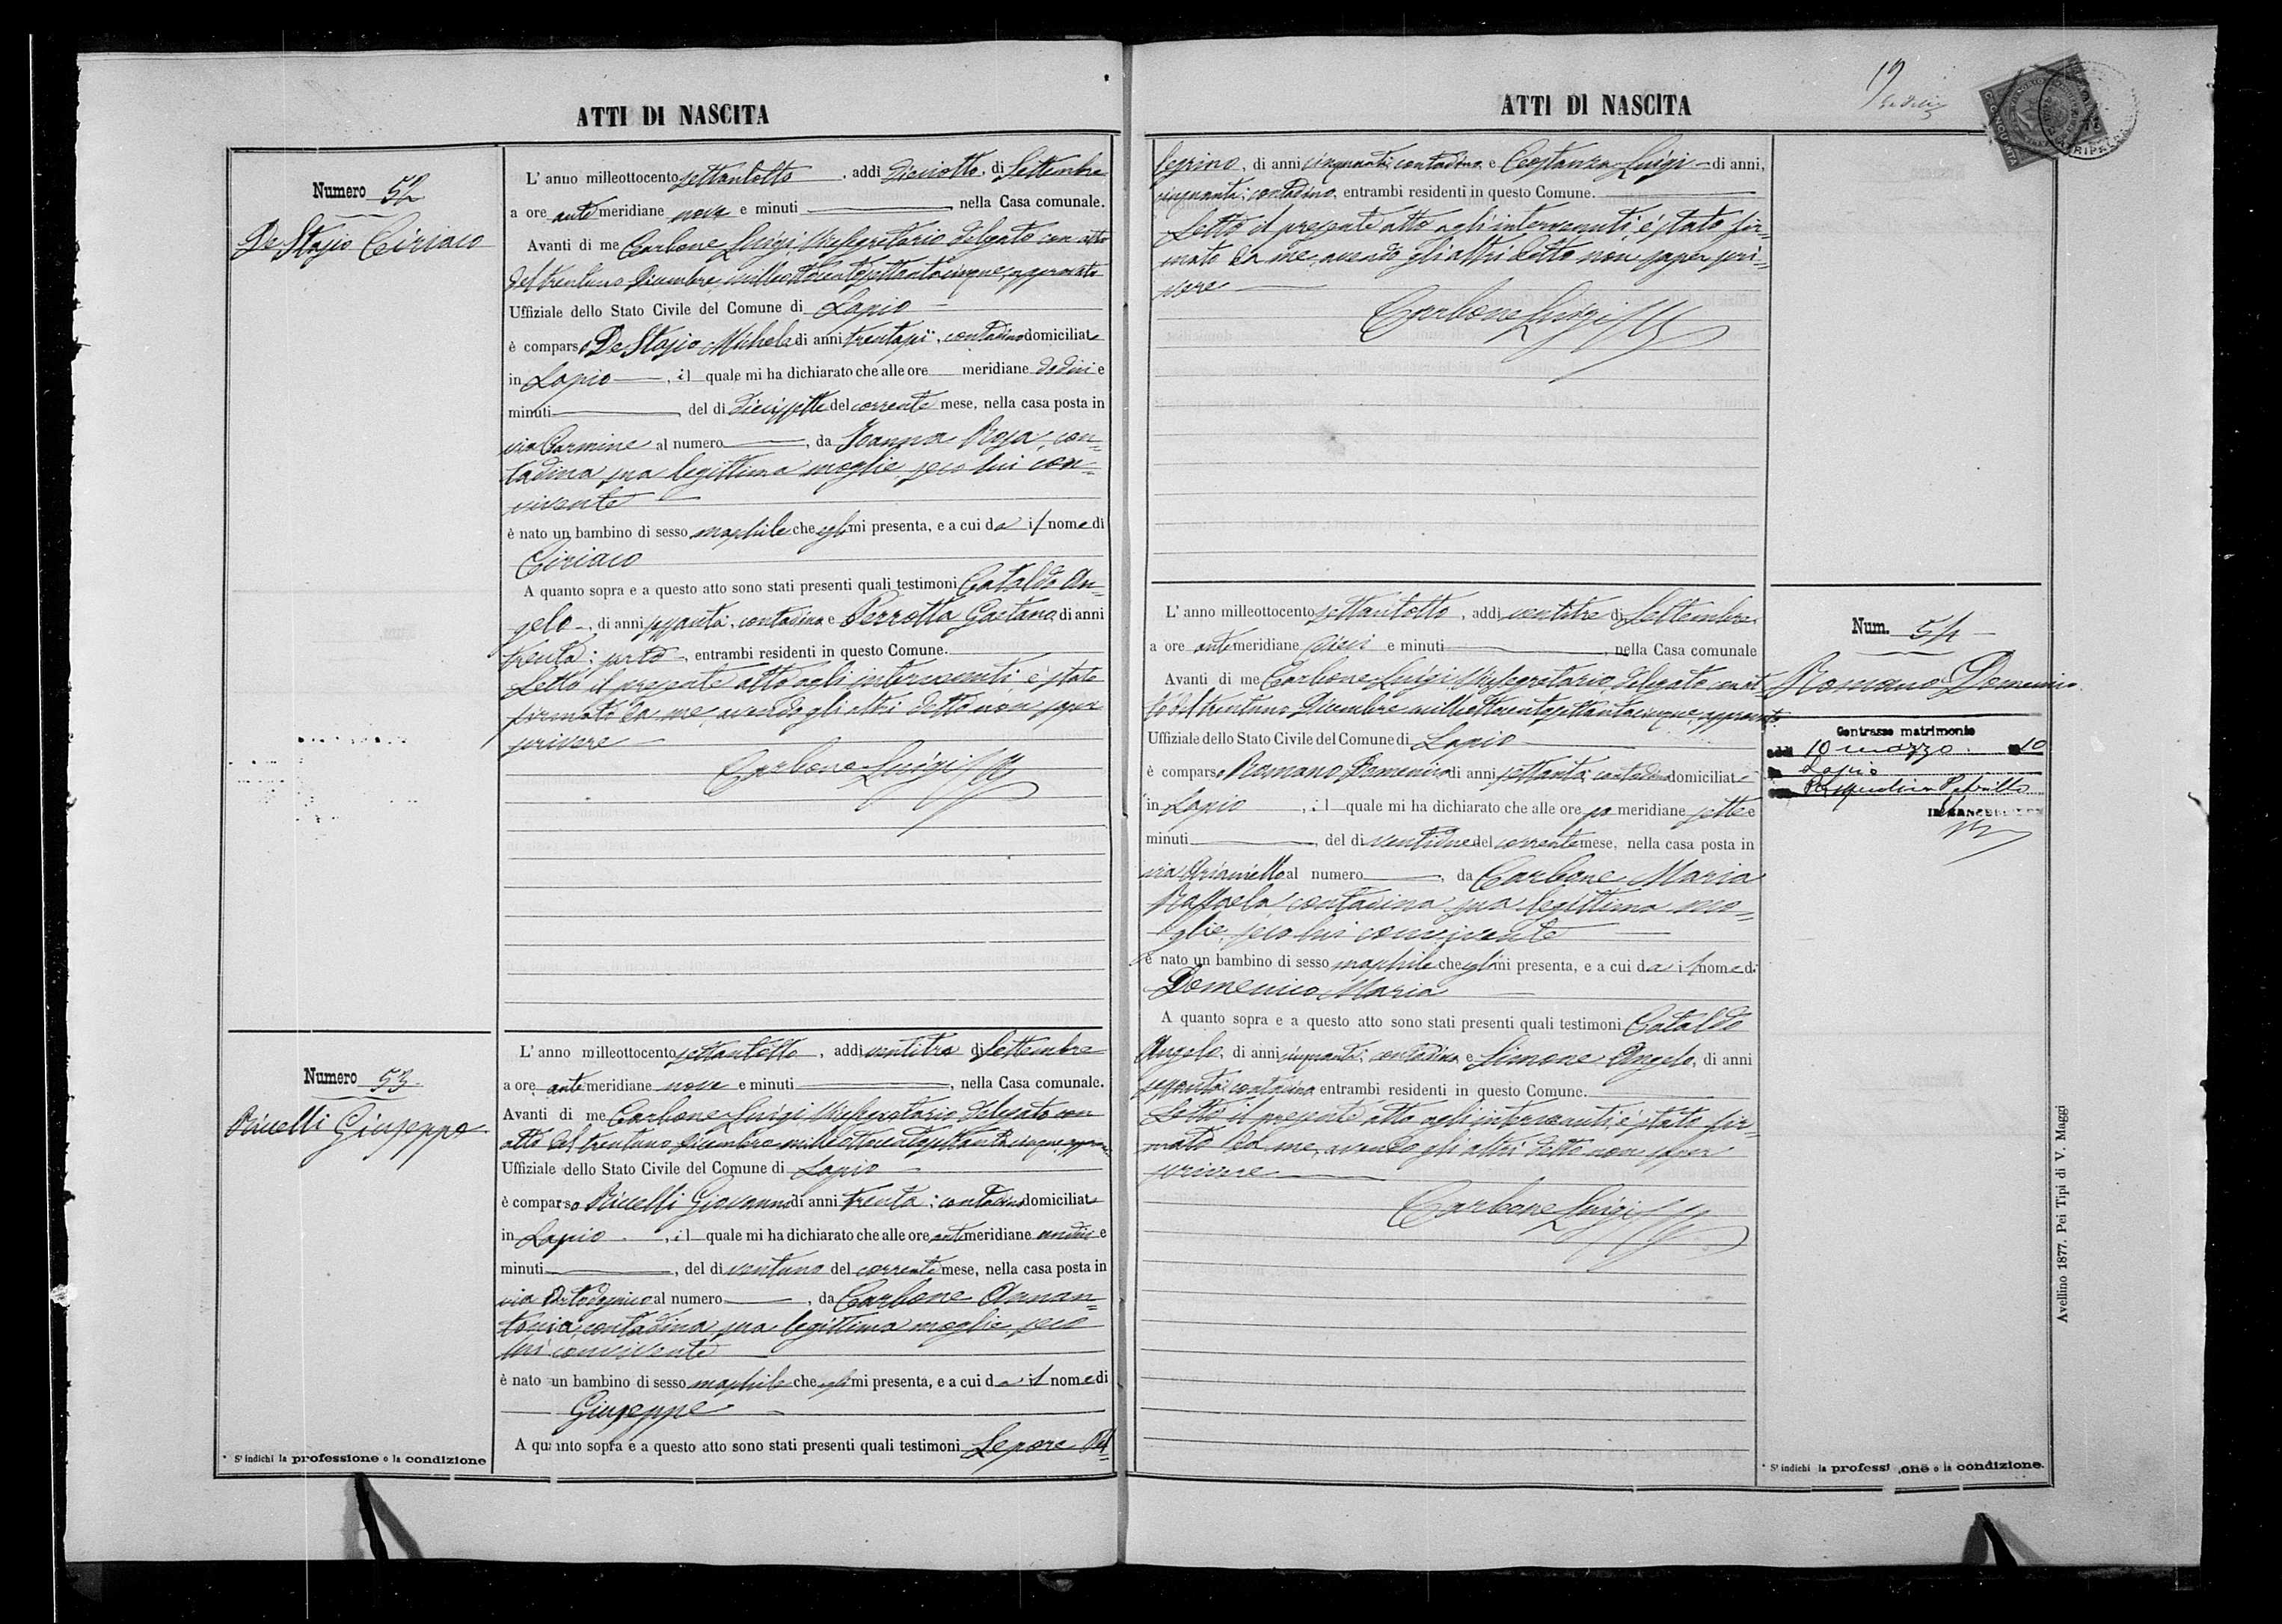 ATTI DI NASCITA
Numero 52
De Stasio Ciriaco
L'anno milleottocento settantotto, addì dieciotto, di Settembre
a ore anti meridiane nove e minuti, nella Casa comunale.
Avanti di me Carbone Luigi, Vicesegretario delegato con atto
del trentuno Dicembre milleottocentosettantacinque, approvato
Uffiziale dello Stato Civile del Comune di Lapio
è comparso De Stasio Michele di anni trentasei, contadino domiciliato
in Lapio, il quale mi ha dichiarato che alle ore meridiane dodici e
minuti, del dì diecissette del corrente mese, nella casa posta in
via Carmine al numero, da Ioanna Rosa, con=
tadina sua legittima moglie, seco lui con=
vivente
è nato un bambino di sesso maschile che egli mi presenta, e a cui da il nome di
Ciriaco
A quanto sopra e a questo atto sono stati presenti quali testimoni Cataldo An=
gelo, di anni, contadino e Perrotta Gaetano, di anni
trenta, sarto, entrambi residenti in questo Comune.
Letto il presente atto agli intervenuti, è stato
firmato da me, avendo gli altri detto non saper
scrivere
Carbone Luigi
Numero 53
Giuseppe
L'anno milleottocento settantotto, addì ventitre di Settembre
a ore anti meridiane nove e minuti, nella Casa comunale.
Avanti di me Carbone Luigi, Vicesegretario delegato con
atto del trentuno Dicembre milleottocentosettantacinque, appro=
Uffiziale dello Stato Civile del Comune di Lapio
è comparso Giovanni di anni trenta, contadino domiciliato
in Lapio, il quale mi ha dichiarato che alle ore anti meridiane undici e
minuti, del dì ventuno del corrente mese, nella casa posta in
via al numero, da Carbone Annan=
tonia, contadina sua legittima moglie, seco
lui convivente
è nato un bambino di sesso maschile che egli mi presenta, e a cui da il nome di
Giuseppe
A quanto sopra e a questo atto sono stati presenti quali testimoni Lepore Pel=
* S'indichi la professione o la condizione
ATTI DI NASCITA
19
legrino, di anni cinquanta, contadino e Costanza Luigi di anni,
cinquanta, contadino, entrambi residenti in questo Comune.
Letto il presente atto agli intervenuti, è stato fir=
mato da me, avendo gli altri detto non saper scri=
vere
Carbone Luigi
Num. 54
Romano Domenico
Contrasse matrimonio
addì 10 marzo 10
in Lapio
con Petrillo
L'anno milleottocento settantotto, addì ventitre di Settembre
a ore anti meridiane dieci e minuti, nella Casa comunale
Avanti di me Carbone Luigi, Vicesegretario delegato con at=
to del trentuno Dicembre milleottocentosettantacinque, approvato
Uffiziale dello Stato Civile del Comune di Lapio
è comparso Romano Domenico di anni settanta, contadino domiciliato
in Lapio, il quale mi ha dichiarato che alle ore po meridiane sette e
minuti, del dì ventidue del corrente mese, nella casa posta in
via al numero, da Carbone Maria
Raffaela, contadina sua legittima mo=
glie, seco lui convivente
è nato un bambino di sesso maschile che egli mi presenta, e a cui da il nome di
Domenico Maria
A quanto sopra e a questo atto sono stati presenti quali testimoni Cataldo
Angelo, di anni cinquanta, contadino e Simone Angelo, di anni
sessanta, contadino entrambi residenti in questo Comune.
Letto il presente atto agli intervenuti, è stato fir=
mato da me, avendo gli altri detto non saper
scrivere
Carbone Luigi
* S'indichi la professione o la condizione.
Avellino 1877. Pei Tipi di V. Maggi